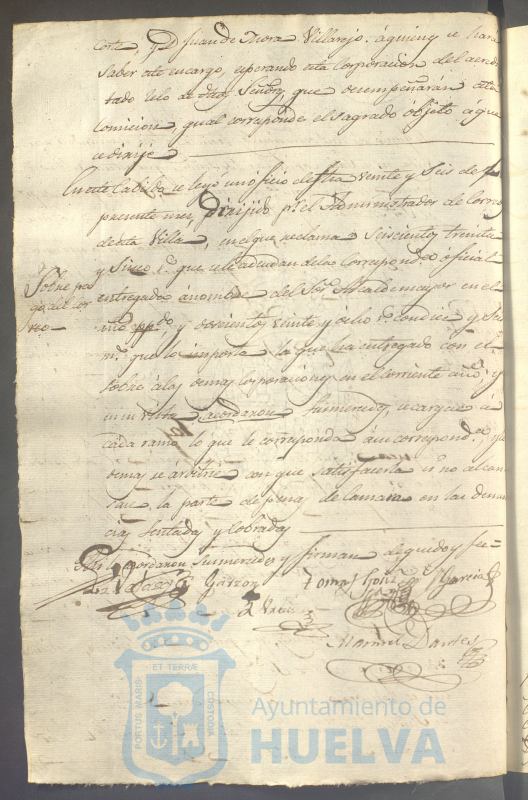 Corte, y D. Juan de Mora Villarejo: á quienes se hará
saber este encargo, esperando esta Corporacion del acredi
tado celo de dhos Señores, que desempeñarán esta
Comicion, qual corresponde el sagrado objeto á que
se dirije
En este Cabildo se leyó un oficio de fha veinte y seis del
presente mes, dirijido pr. el Administrador de Correos
de esta Villa, en el que reclama seiscientos treinta
y cinco rs. que se le adeudan de la correspondca oficial
entregada á nombre del Sor. Alcalde mayor en el
año ppdo, y doscientos veinte y ocho rs. con diez y seis
ms. que le importa la que ha entregado con el
sobre á las demas corporaciones en el corriente año; y
en su vista acordaron sus mercedes, se cargue á
cada ramo lo que le corresponda á su correspond.ca, y
demas se arbitre con que satisfacerla si no alcan
sase la parte de penas de Camara en las denun
cias sentadas y cobradas
Sobre pa
go del co
rreo
Asi lo acordaron sus mercedes y firman de que doy fe=
Garzon
Tomas Gonz Garcia
Manuel Dantes
PORTUS MARIS
ET TERRÆ
CUSTODIA
Ayuntamiento de
HUELVA